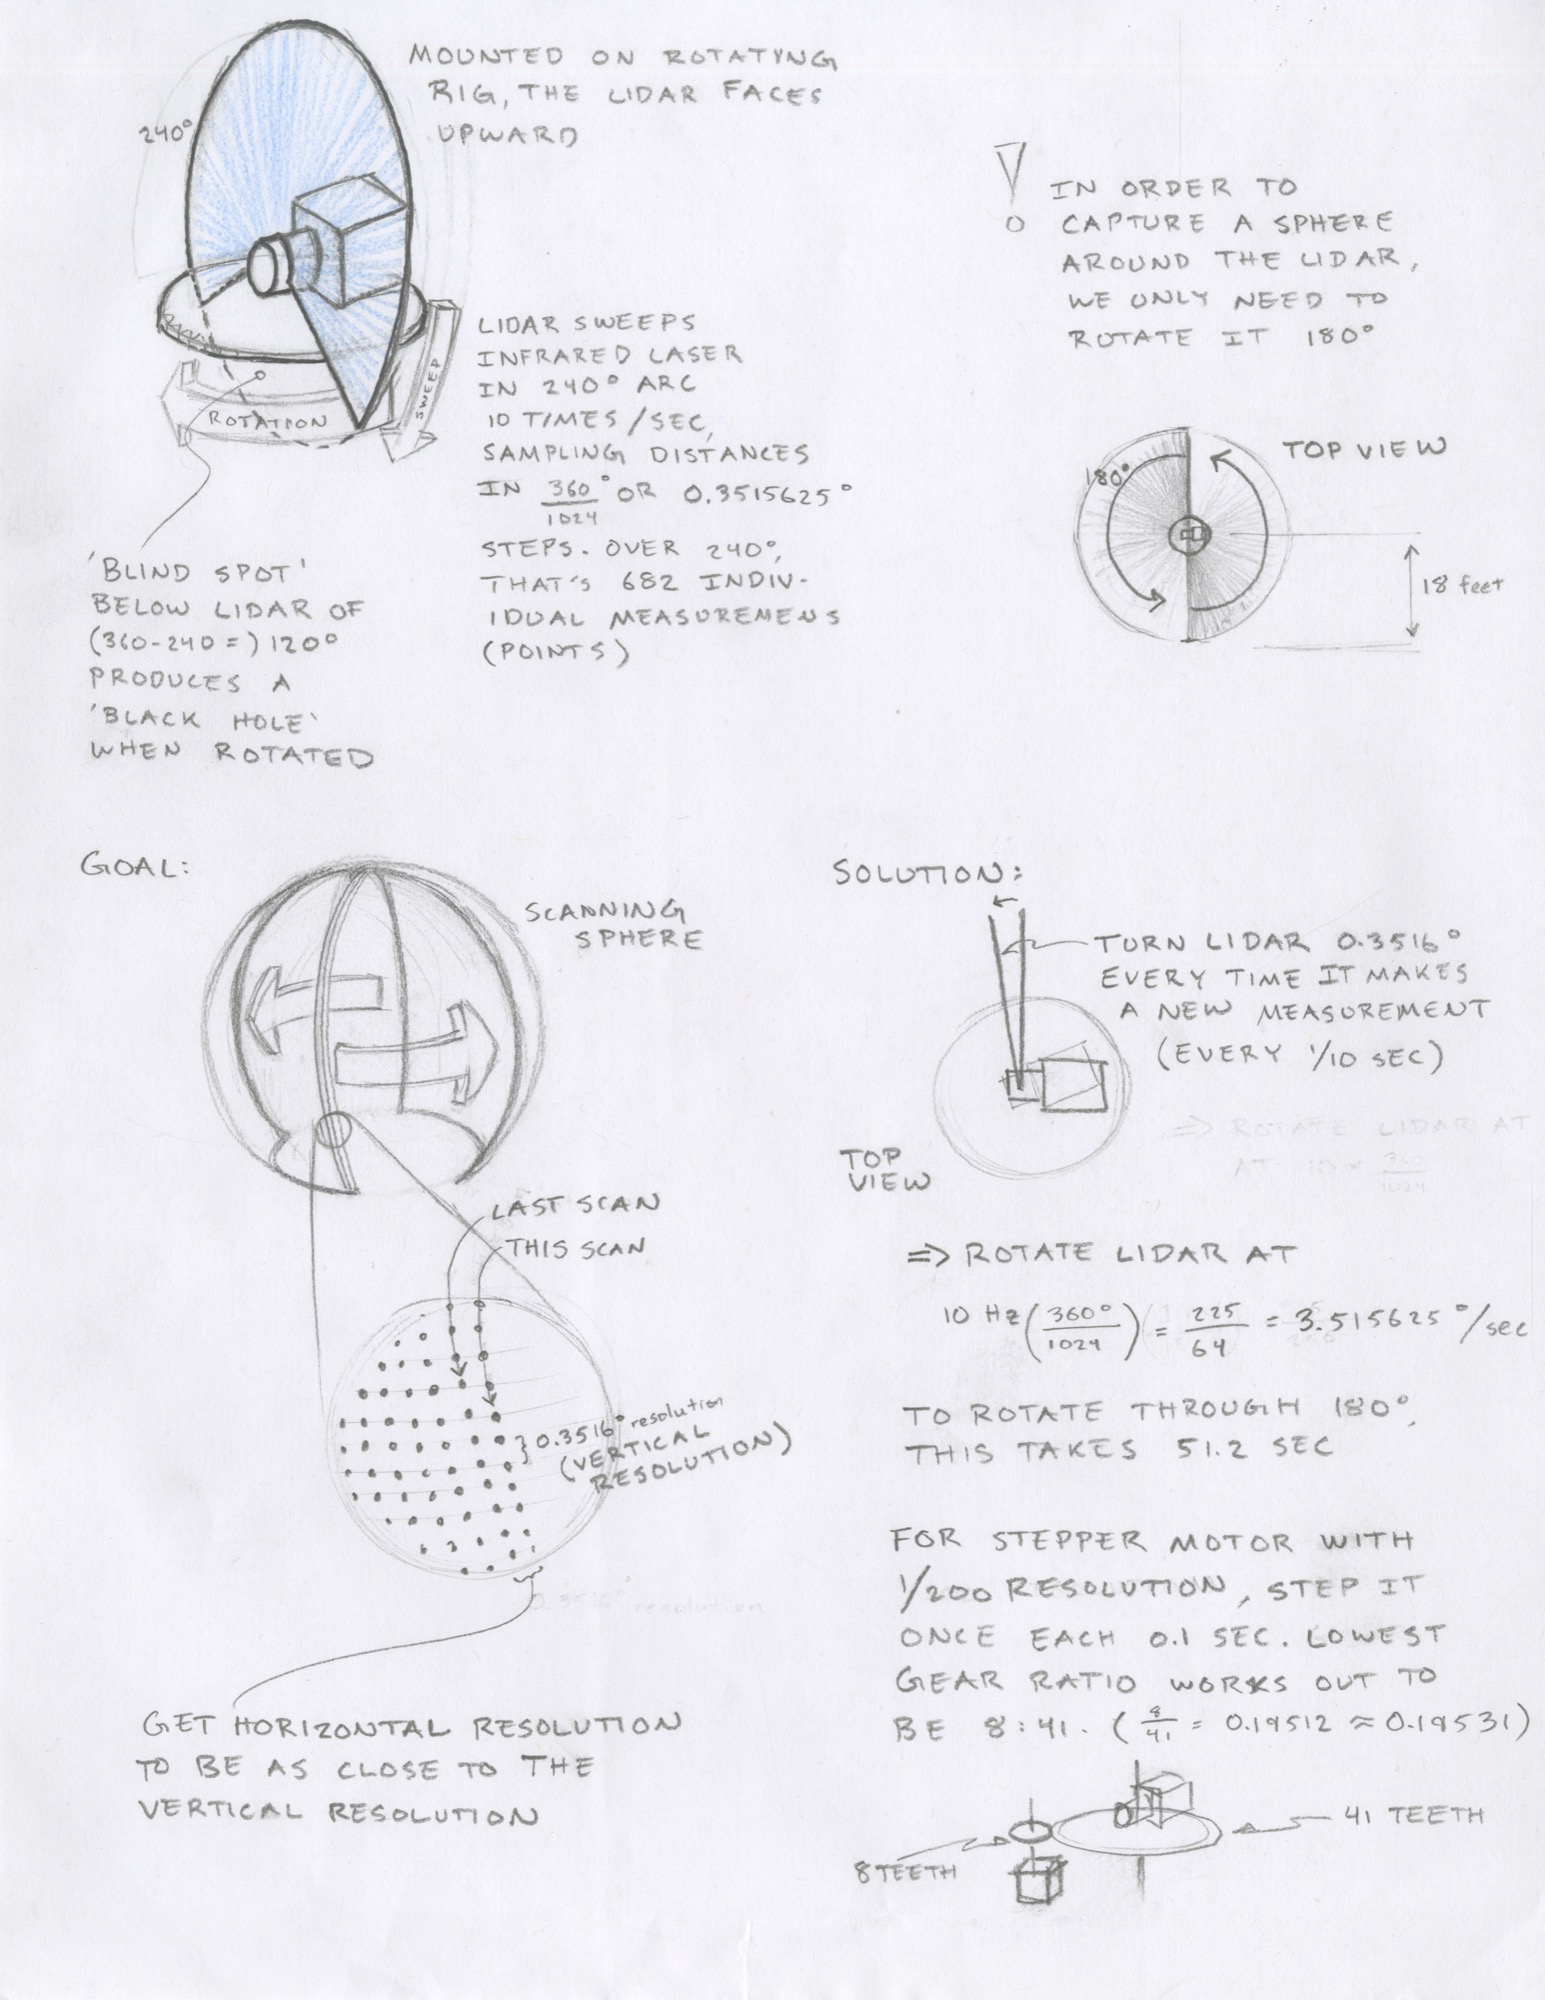 MOUNTED ON ROTATYNG
RIG, THE LIDAR FACES
UPWARD
240°
ROTATION
SWEEP
LIDAR SWEEPS
INFRARED LASER
IN 240° ARC
10 TIMES/SEC,
SAMPLING DISTANCES
IN 360/1024° OR 0.3515625°
STEPS. OVER 240°,
THAT'S 682 INDIV-
IDUAL MEASUREMENS
(POINTS)
'BLIND SPOT'
BELOW LIDAR OF
(360-240=) 120°
PRODUCES A
'BLACK HOLE'
WHEN ROTATED
IN ORDER TO
CAPTURE A SPHERE
AROUND THE LIDAR,
WE ONLY NEED TO
ROTATE IT 180°
TOP VIEW
180°
18 feet
GOAL:
SCANNING
SPHERE
LAST SCAN
THIS SCAN
0.3516° resolution
(VERTICAL
RESOLUTION)
0.3516° resolution
GET HORIZONTAL RESOLUTION
TO BE AS CLOSE TO THE
VERTICAL RESOLUTION
SOLUTION:
TURN LIDAR 0.3516°
EVERY TIME IT MAKES
A NEW MEASUREMENT
(EVERY 1/10 SEC)
⇒ ROTATE LIDAR AT
AT 10 × 360/1024
TOP
VIEW
⇒ ROTATE LIDAR AT
10 Hz (360°/1024) = 225/64 = 3.515625°/sec
TO ROTATE THROUGH 180°,
THIS TAKES 51.2 SEC
FOR STEPPER MOTOR WITH
1/200 RESOLUTION, STEP IT
ONCE EACH 0.1 SEC. LOWEST
GEAR RATIO WORKS OUT TO
BE 8:41. (8/41 = 0.19512 ≈ 0.19531)
41 TEETH
8 TEETH